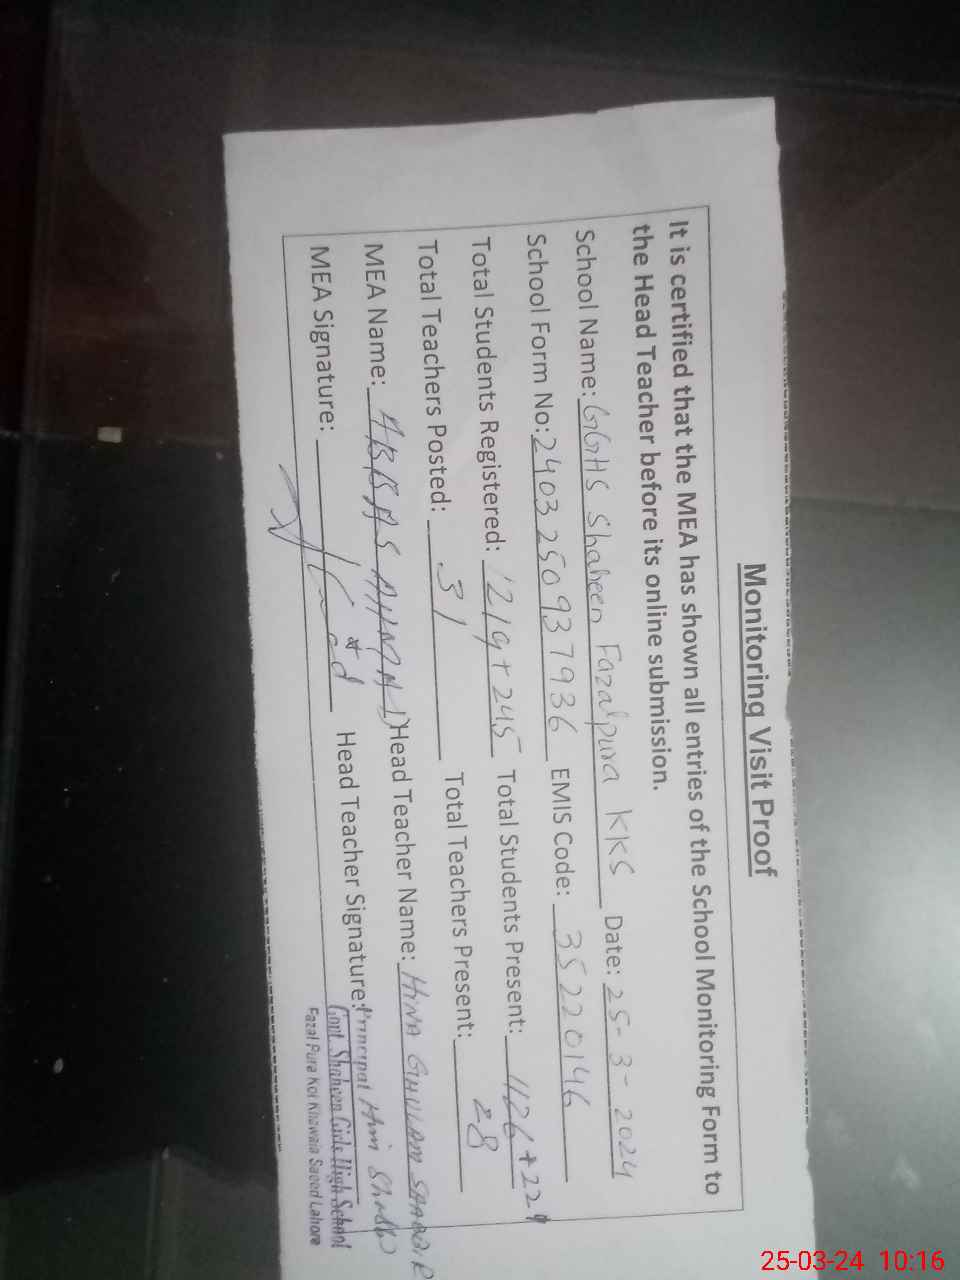 Monitoring Visit Proof
It is certified that the MEA has shown all entries of the School Monitoring Form to
the Head Teacher before its online submission.
School Name: GGHS Shaheen Fazalpura KKS Date: 25-3-2024
School Form No: 2403250937936 EMIS Code: 35220146
Total Students Registered: 1219+245 Total Students Present: 1126+229
Total Teachers Posted: 31 Total Teachers Present: 28
MEA Name: ABBAS AHMAD Head Teacher Name: HINA GHULAM SHABBIR
MEA Signature: Head Teacher Signature: Principal
Govt. Shaheen Girls High School
Fazal Pura Kot Khawaja Saeed Lahore
25-03-24 10:16